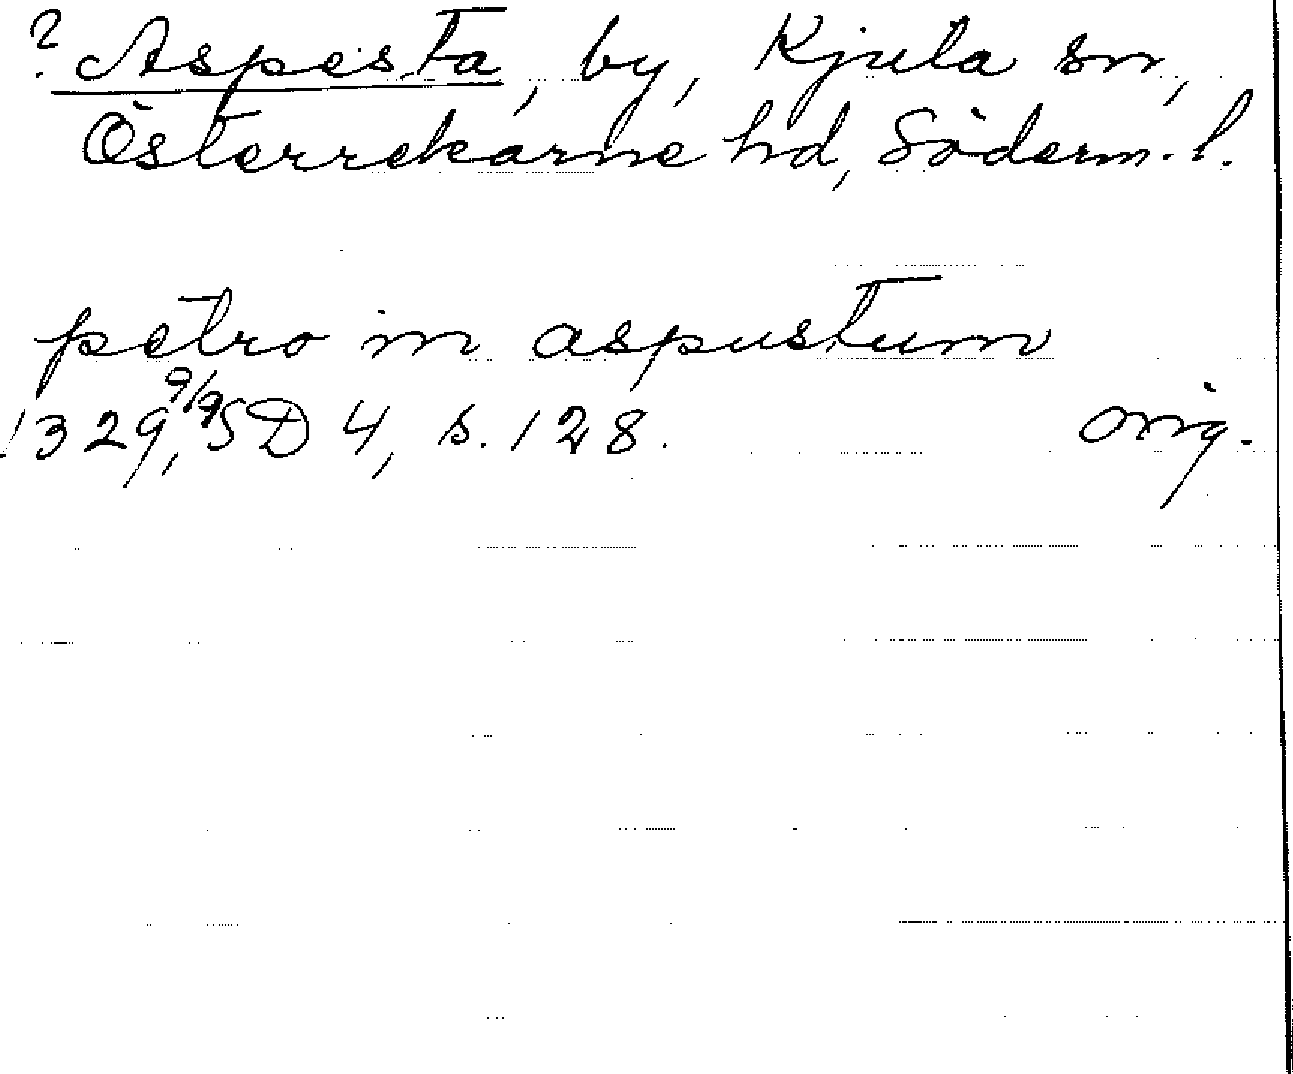 ? Aspesta, by, Kjula sn,
Österrekarne hd, Söderm. l.
petro in aspustum
1329, 9/9, SD 4, s. 128. orig.